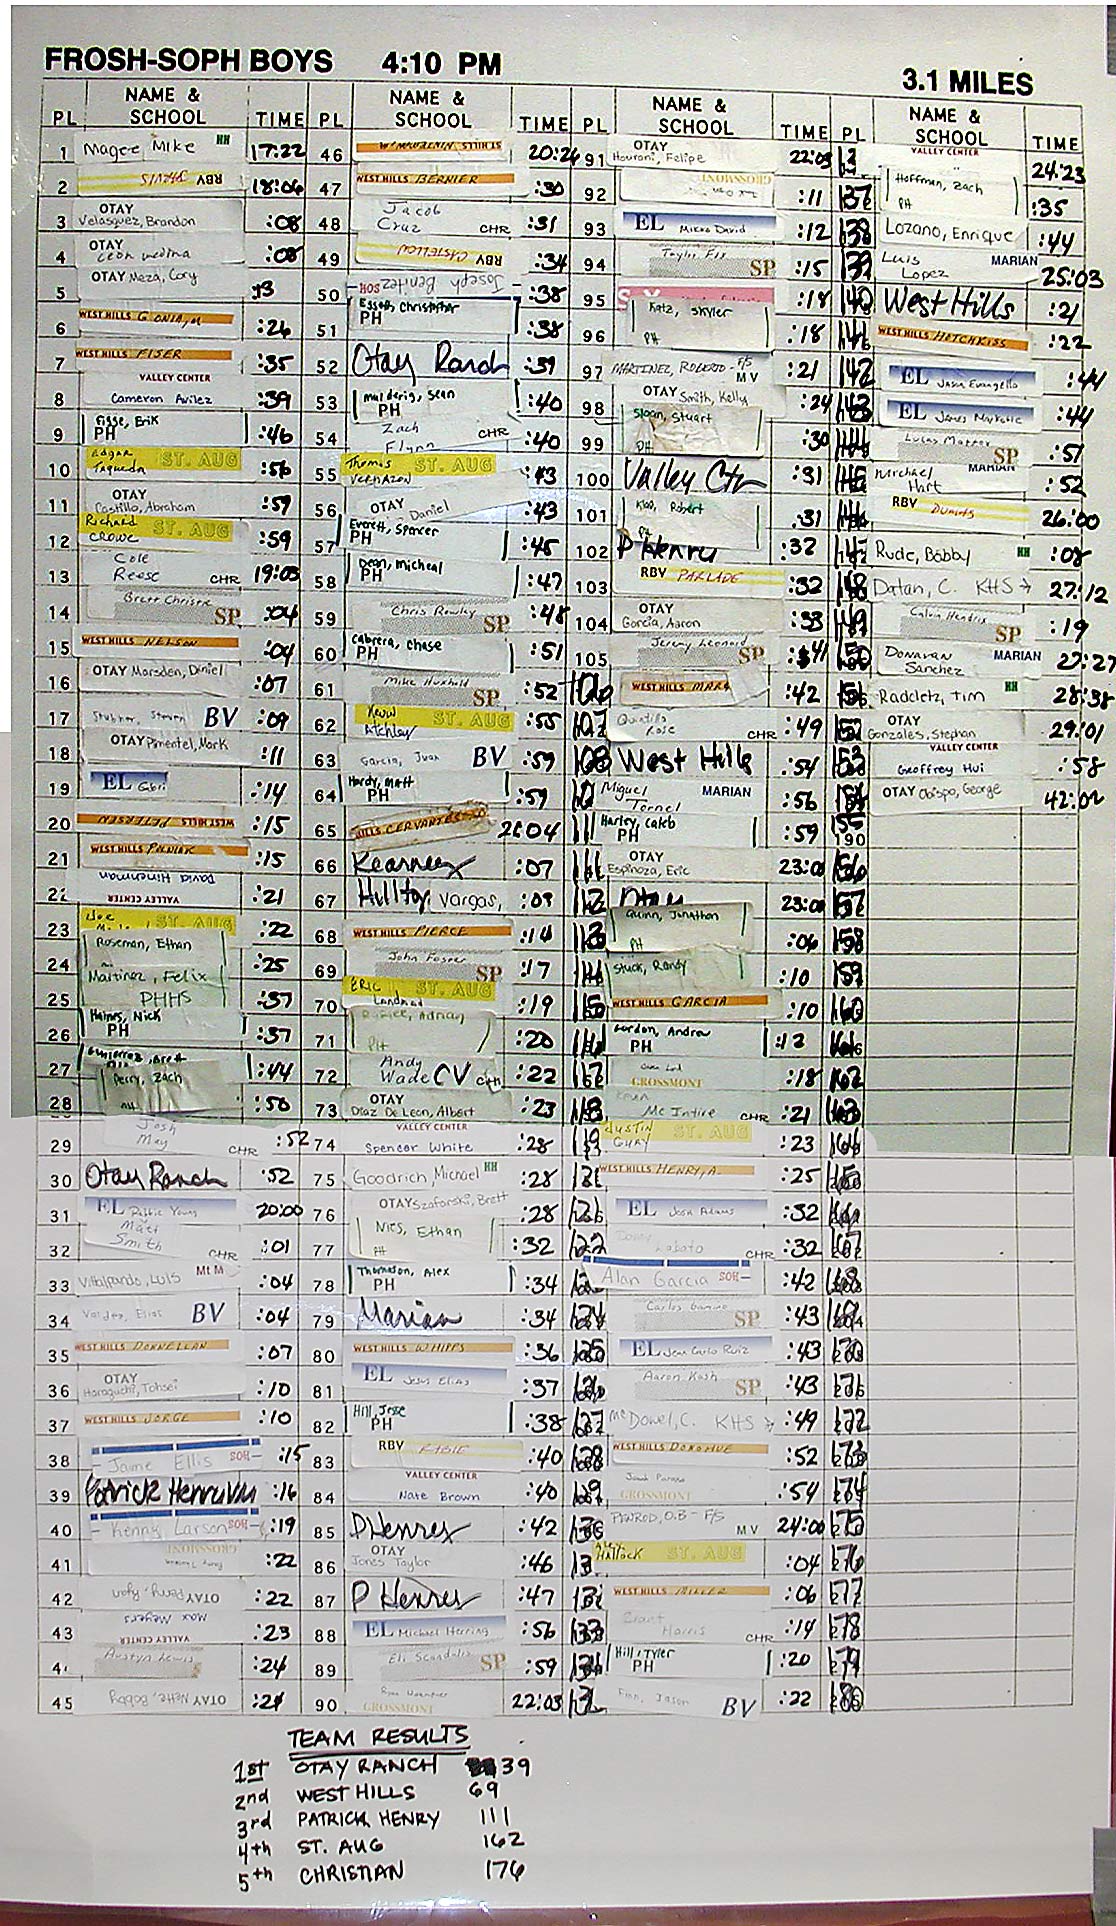 FROSH-SOPH BOYS 4:10 PM 3.1 MILES
PL NAME & SCHOOL TIME
1 Magee, Mike HH 17:22
2 RBV 18:06
3 OTAY Velasquez, Brandon :08
4 OTAY Leon Medina :08
5 OTAY Meza, Cory :13
6 WEST HILLS :26
7 WEST HILLS FISER :35
8 VALLEY CENTER Cameron Avilez :39
9 Fisse, Erik PH :46
10 Edgar ST. AUG :56
11 OTAY Castillo, Abraham :59
12 Richard Crowe ST. AUG :59
13 Cole Reese CHR 19:03
14 Brett Christie SP :04
15 WEST HILLS NELSON :04
16 OTAY Marsden, Daniel :07
17 Steven BV :09
18 OTAY Pimentel, Mark :11
19 EL :14
20 WEST HILLS PETERSEN :15
21 WEST HILLS :15
22 VALLEY CENTER David Hinchman :21
23 ST. AUG :22
Roseman, Ethan
24 Martinez, Felix :25
25 PHHS :37
26 Haines, Nick PH :37
27 :44
28 Perry, Zach :50
29 Josh May CHR :52
30 Otay Ranch :52
31 EL Robbie Young 20:00
32 Matt Smith CHR :01
33 Villalpando, LUIS Mt M :04
34 Valdez, Elias BV :04
35 WEST HILLS DONNELLAN :07
36 OTAY Haraguchi, Tohsei :10
37 WEST HILLS JORGE :10
38 Jaime Ellis SOH :15
39 Patrick Henry :16
40 Kenny Larson SOH :19
41 GROSSMONT :22
42 OTAY Perry, Ryan :22
43 VALLEY CENTER Max Meyers :23
Austyn Lewis :24
45 OTAY Nette, Bobby :24
PL NAME & SCHOOL TIME
46 WEST HILLS 20:26
47 WEST HILLS BERNIER :30
48 Jacob Cruz CHR :31
49 RBV CASTELLON :34
50 Joseph Benitez SOH :38
51 Esseff, Christopher PH :38
52 Otay Ranch :39
53 Mulderig, Sean PH :40
54 Zach Flynn CHR :40
55 Thomas ST. AUG :43
56 OTAY Daniel :43
57 Everett, Spencer PH :45
58 Dean, Micheal PH :47
59 Chris Rowley SP :48
60 Cabrera, Chase PH :51
61 Mike Huxhold SP :52
62 Kevin Atchley ST. AUG :55
63 Garcia, Juan BV :59
64 Hardy, Matt PH :59
65 HILLS CERVANTES 21:04
66 Kearney :07
67 Hilltop Vargas, :09
68 WEST HILLS PIERCE :14
69 John Foster SP :17
70 ERIC Landman ST. AUG :19
71 PH :20
72 Andy Wade CV CHR :22
73 OTAY Diaz De Leon, Albert :23
74 VALLEY CENTER Spencer White :28
75 Goodrich, Michael HH :28
76 OTAY Szafarski, Brett :28
77 Nies, Ethan PH :32
78 Thompson, Alex PH :34
79 Marian :34
80 WEST HILLS WHIPPS :36
81 EL Jesus Elias :37
82 Hill, Jesse PH :38
83 RBV :40
84 VALLEY CENTER Nate Brown :40
85 P Henry :42
86 OTAY Jones Taylor :46
87 P Henry :47
88 EL Michael Herring :56
89 Eli SP :59
90 Ryan GROSSMONT 22:03
PL NAME & SCHOOL TIME
91 OTAY Hourani, Felipe 22:09
92 GROSSMONT :11
93 EL David :12
94 Taylor Fix SP :15
95 :18
96 Katz, Skyler PH :18
97 MARTINEZ, ROBERTO - F/S MV :21
98 OTAY Smith, Kelly :24
99 Sloan, Stuart PH :30
100 Valley Ctr :31
101 Robert PH :31
102 P Henry :32
103 RBV PARLADE :32
104 OTAY Garcia, Aaron :33
105 Jeremy Leonard SP :41
106 WEST HILLS :42
107 Rose CHR :49
108 West Hills :54
Miguel Tornel MARIAN :56
Harley, Caleb PH :59
111 OTAY Espinoza, Eric 23:00
112 Otay 23:00
113 Quinn, Jonathan PH :06
Stuck, Randy :10
WEST HILLS GARCIA :10
Gordon, Andrew PH :12
GROSSMONT :18
Mc Intire CHR :21
JUSTIN GUAY ST. AUG :23
WEST HILLS HENRY, A. :25
EL Josh Adams :32
122 Lobato CHR :32
Alan Garcia SOH :42
124 Carlos SP :43
125 EL Jean Carlo Ruiz :43
Aaron Kash SP :43
127 McDowel, C. KHS :49
128 WEST HILLS DONOHUE :52
129 GROSSMONT :54
PENROD, O.B - F/S MV 24:00
ALEX HALLOCK ST. AUG :04
WEST HILLS MILLER :06
133 Grant Harris CHR :14
Hill, Tyler PH :20
Finn, Jason BV :22
PL NAME & SCHOOL TIME
VALLEY CENTER 24:23
137 Hoffman, Zach PH :35
138 Lozano, Enrique :44
139 Luis Lopez MARIAN 25:03
140 West Hills :21
WEST HILLS HOTCHKISS :22
142 EL Jason Evangelio :44
143 EL James :44
144 Lucas SP :51
Michael Hart MARIAN :52
RBV DUMAS 26:00
147 Rude, Bobby HH :08
148 Datan, C. KHS → 27:12
149 Calvin Hendrix SP :19
150 DONAVAN Sanchez MARIAN 27:27
151 Radcletz, Tim HH 28:38
152 OTAY Gonzales, Stephan 29:01
153 VALLEY CENTER Geoffrey Hui :58
154 OTAY Obispo, George 42:02
155
190
156
157
158
159
160
162
163
170
172
173
174
175
176
177
178
179
180
TEAM RESULTS
1st OTAY RANCH 39
2nd WEST HILLS 69
3rd PATRICK HENRY 111
4th ST. AUG 162
5th CHRISTIAN 176